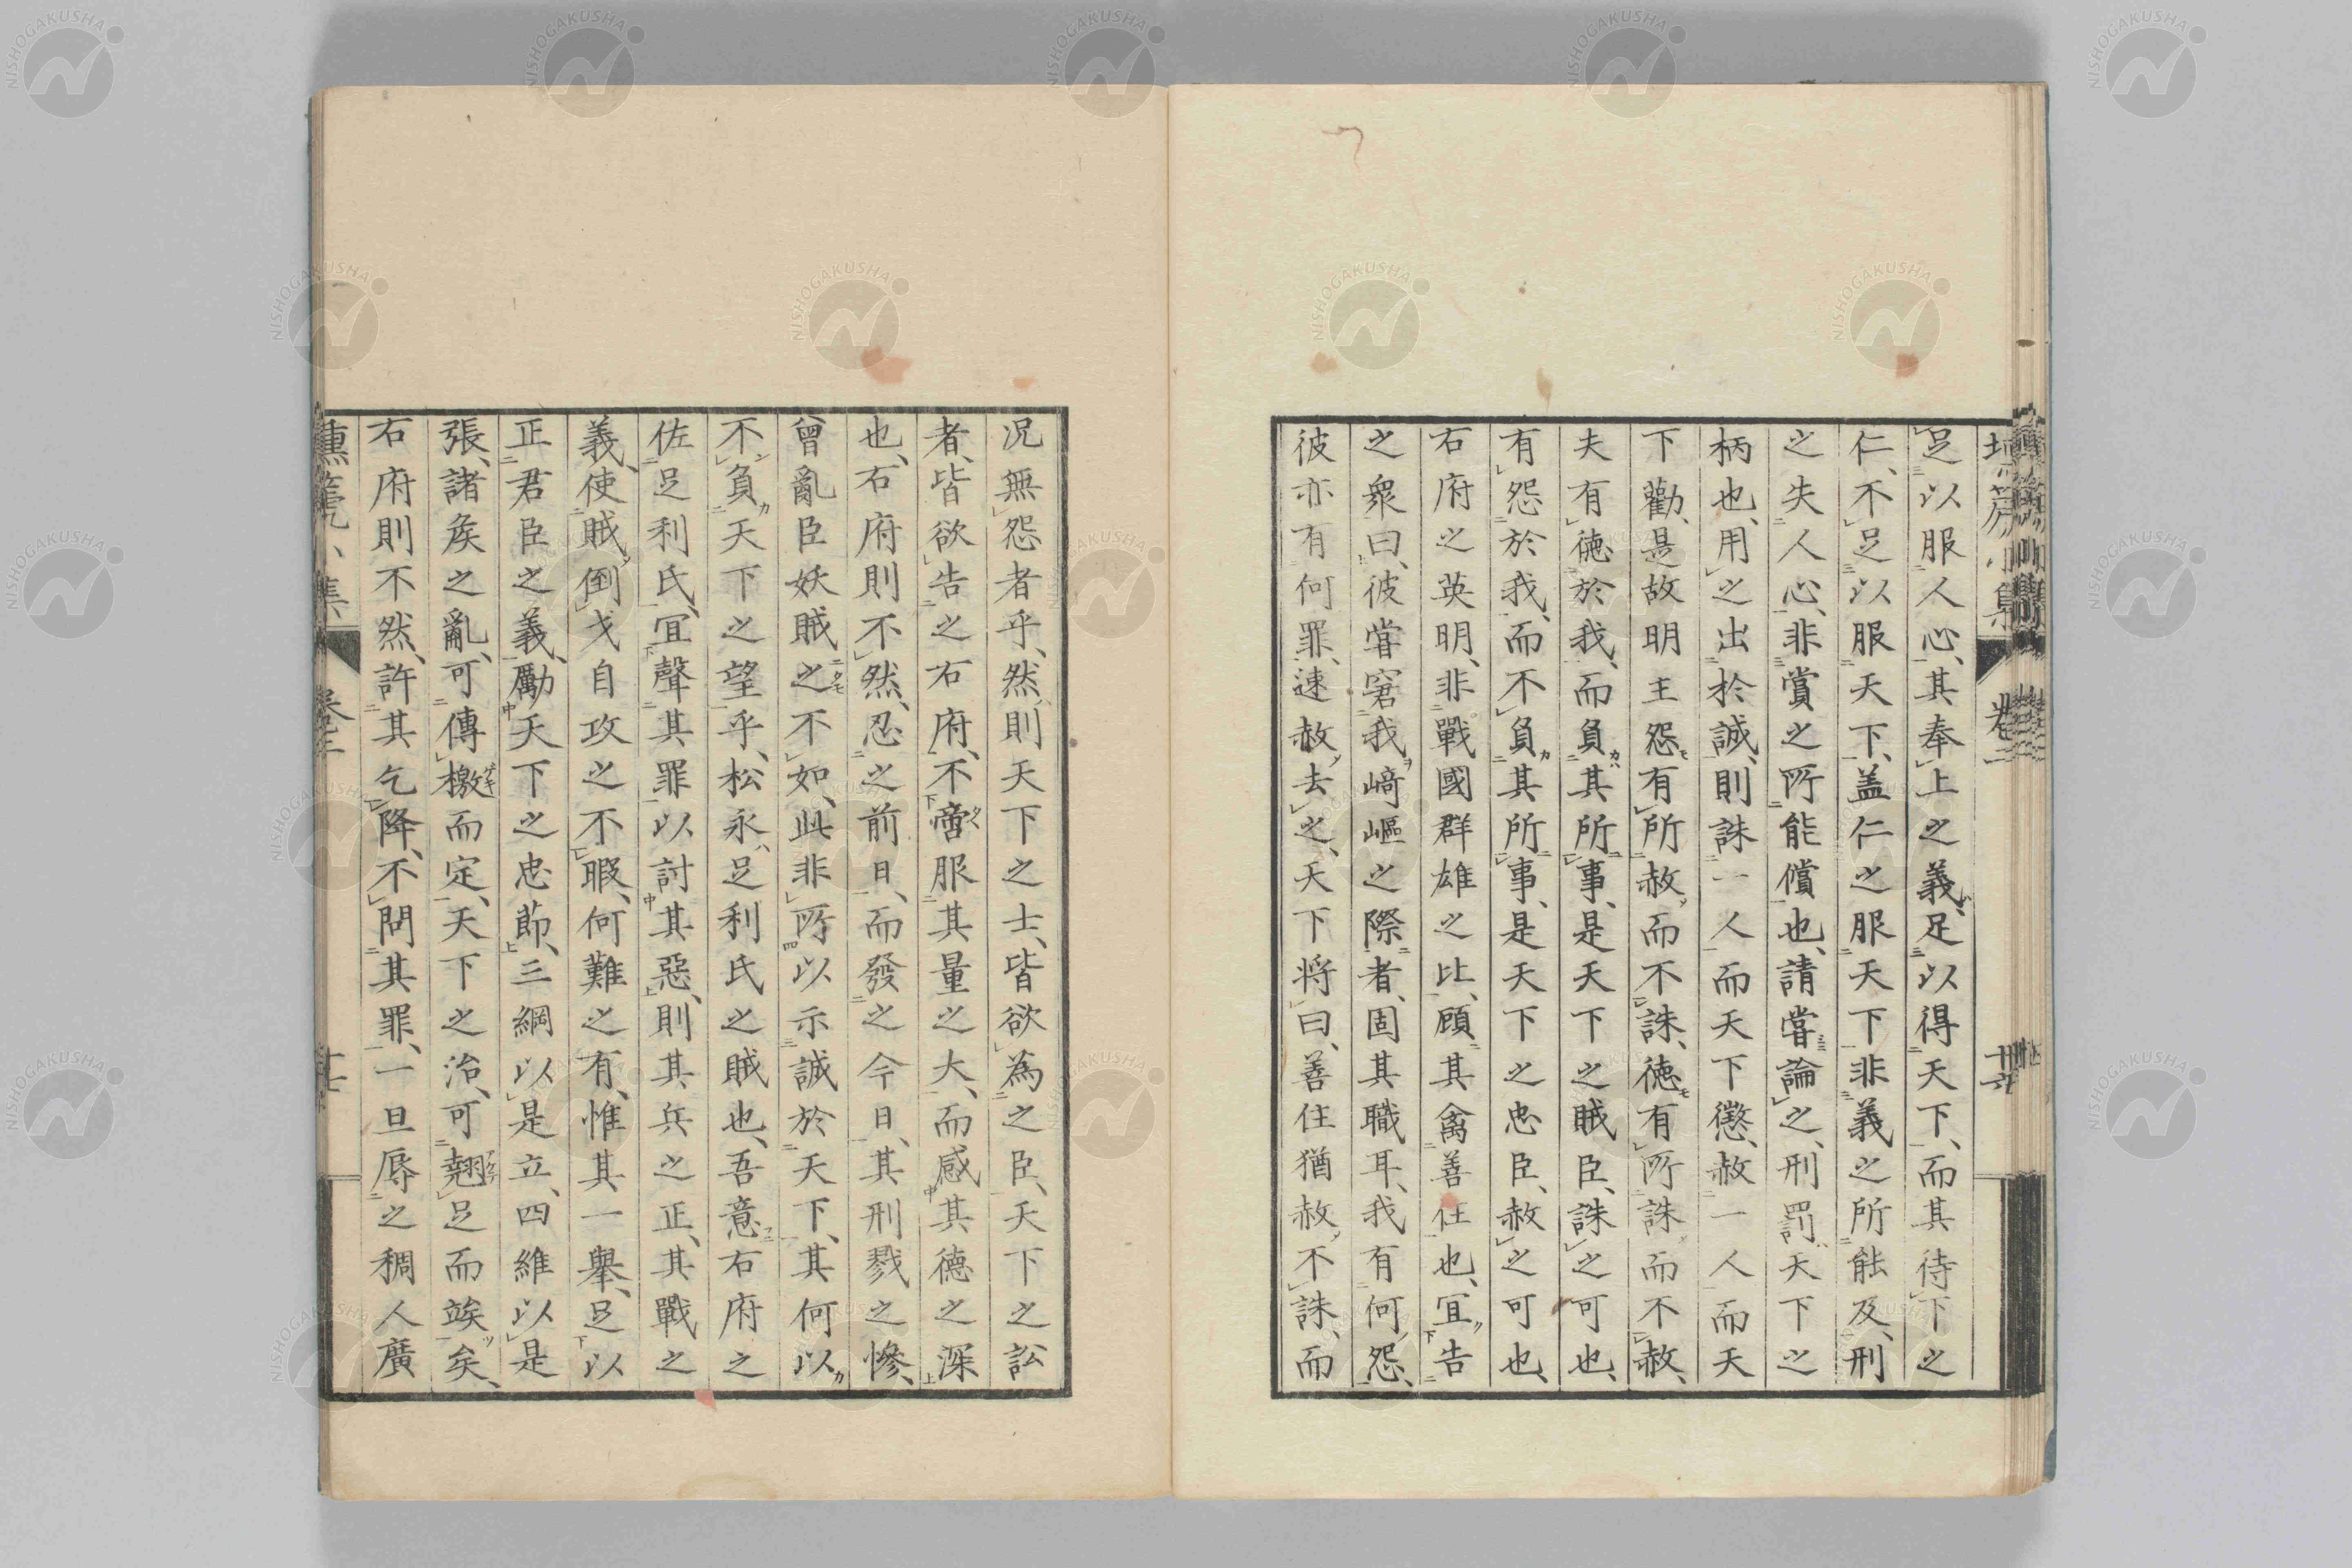 足以服人心、其奉上之義、足以得天下、而其待下之
仁、不足以服天下、盖仁之服天下非義之所能及、刑
之失人心、非賞之所能償也、請嘗論之、刑罰天下之
柄也、用之出於誠、則誅一人而天下懲、赦一人而天
下勸、是故明主怨有所赦、而不誅、徳有所誅而不赦、
夫有徳於我、而負其所事、是天下之賊臣、誅之可也、
有怨於我、而不負其所事、是天下之忠臣、赦之可也、
右府之英明、非戰國群雄之比、顧其禽善住也、宜告
之衆曰、彼嘗窘我崎嶇之際者、固其職耳、我有何怨、
彼亦有何罪、速赦去之、天下将曰、善住猶赦不誅、而
况無怨者乎、然則天下之士、皆欲為之臣、天下之訟
者、皆欲告之右府、不啻服其量之大、而感其德之深
也、右府則不然、忍之前日、而發之今日、其刑戮之慘、
曾亂臣妖賊之不如、此非所以示誠於天下、其何以
不負天下之望乎、松永、足利氏之賊也、吾意右府之
佐足利氏、宜聲其罪以討其惡、則其兵之正、其戰之
義、使賊倒戈自攻之不暇、何難之有、惟其一舉、足以
正君臣之義、勵天下之忠節、三綱以是立、四維以是
張、諸矦之亂、可傳檄而定、天下之治、可翹足而竢矣、
右府則不然、許其乞降、不問其罪、一旦辱之稠人廣